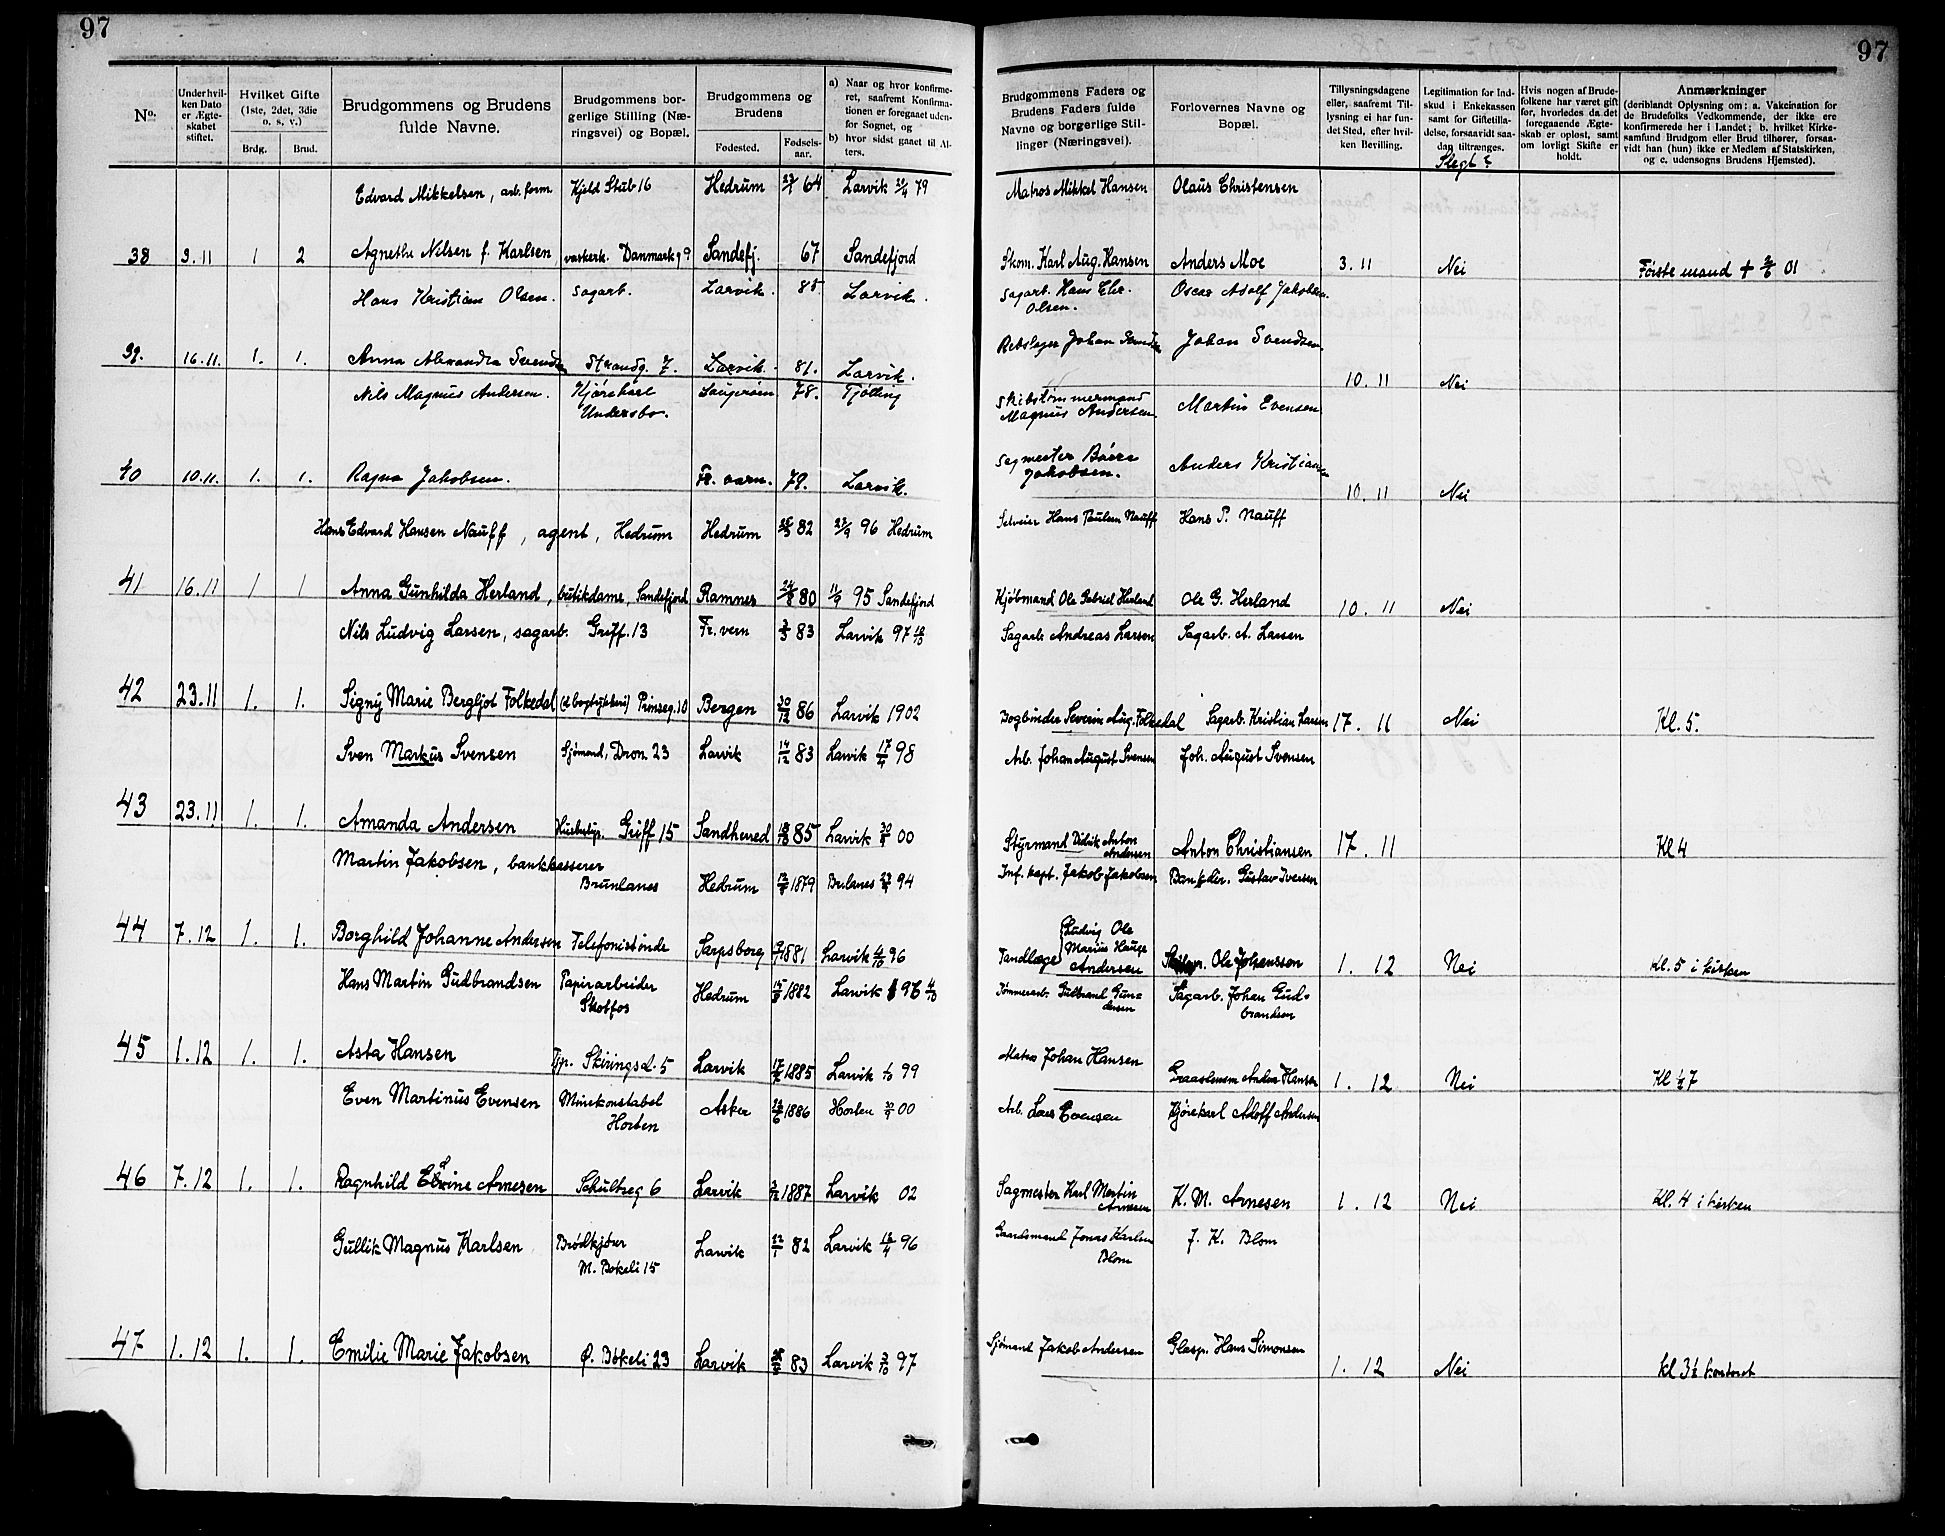 97
97
No.
Under hvilken Dato er Ægteskabet stiftet.
Hvilket Gifte (1ste, 2det, 3die o. s. v.)
Brdg.
Brud.
Brudgommens og Brudens fulde Navne.
Brudgommens borgerlige Stilling (Næringsvei) og Bopæl.
Brudgommens og Brudens
Fødested.
Fødselsaar.
a) Naar og hvor konfirmeret, saafremt Konfirmationen er foregaaet udenfor Sognet, og
b) hvor sidst gaaet til Alters.
Brudgommens Faders og Brudens Faders fulde Navne og borgerlige Stillinger (Næringsvei).
Forlovernes Navne og Bopæl.
Tillysningsdagene eller, saafremt Tillysning ei har fundet Sted, efter hvilken Bevilling.
Legitimation for Indskud i Enkekassen samt for Giftetilladelse, forsaavidt saadan tiltrænges.
Slegt?
Hvis nogen af Brudefolkene har været gift før, hvorledes da det foregaaende Ægteskab er opløst, samt om lovligt Skifte er holdt.
Anmærkninger
(deriblandt Oplysning om: a. Vakcination for de Brudefolks Vedkommende, der ikke ere konfirmerede her i Landet; b. hvilket Kirkesamfund Brudgom eller Brud tilhører, forsaavidt han (hun) ikke er Medlem af Statskirken, og c. udensogns Brudens Hjemsted).
Edvard Mikkelsen, arb. form. Kjeld Stub 16 Hedrum 64 Larvik 20/4 79 Matros Mikkel Hansen Olaus Christensen
38 3.11 1 2 Agnethe Nilsen f. Karlsen Danmark 9 Sandefj. 67 Sandefjord Skom. Karl Aug. Hansen Anders Moe 3.11 Nei Første mand + 01
Hans Kristian Olsen. Sagarb. Larvik. 85. Larvik. Sagarb. Hans Chr. Olsen. Oscar Adolf Jakobsen.
39. 16.11. 1. 1. Anna Alexandra Svendsen Strandg. 7. Larvik. 81. Larvik. Rebslager Johan Svendsen Johan Svendsen. 10.11 Nei
Nils Magnus Andersen. Kjørekarl Undersbo. 78. Tjølling Skibstømmermand Magnus Andersen. Martin Evensen
40 10.11. 1. 1. Ragna Jakobsen. Fr. værn. 79. Larvik. Sagmester Jakobsen. Anders Kristiansen 10.11 Nei
Hans Edvard Hansen Nauff, agent, Hedrum Hedrum 82 23/9 96 Hedrum Selveier Hans Paulsen Nauff Hans P. Nauff
41 16.11 1 1 Anna Gunhilda Herland, butikdame, Sandefjord Ramnes 80 11/9 95 Sandefjord Kjøbmand Ole Gabriel Herland Ole G. Herland 10.11 Nei
Nils Ludvig Larsen, sagarb. Griff. 13 Fr. vern 83 Larvik 97 Sagarb. Andreas Larsen Sagarb. A. Larsen
42 23.11 1. 1. Signy Marie Bergljot Folkedal Prinseg. 10 Bergen 30/12 86 Larvik 1902 Bogbinder Severin Aug. Folkedal Sagarb. Kristian Larsen 17.11 Nei Kl. 5.
Sven Markus Svensen Sjømand, Dron. 23 Larvik 14/12 83 Larvik 98 Arb. Johan August Svensen Joh. August Svensen
43 23.11 1. 1. Amanda Andersen Griff 15 Sandherred 85 Larvik 00 Styrmand Didrik Anton Andersen Anton Christiansen 17.11 Kl 4
Martin Jakobsen, bankkasserer Brunlanes Hedrum 1879 Brulanes 94 Inf. kapt. Jakob Jakobsen Gustav Iversen
44 7.12 1. 1. Borghild Johanne Andersen Telefonistinde Sarpsborg 1881 Larvik 96 Tandlæge Ludvig Ole Marius Hauge Andersen Ole Johansson 1.12 Nei Kl. 5 i kirken
Hans Martin Gudbrandsen Papirarbeider Skotfos Hedrum 1882 Larvik 96 Tømmerarb. Gulbrand Gundersen Sagarb. Johan Gudbrandsen
45 1.12 1. 1. Asta Hansen Skiringsd. 5 Larvik 1885 Larvik 99 Matros Johan Hansen Anders Hansen 1.12 Nei Kl ½ 7
Even Martinus Evensen Minekonstabel Horten Asker 1886 Horten 00 Arb. Lars Evensen Kjørekarl Adolf Andersen
46 7.12 1. 1. Ragnhild Elvine Arnesen 6 Larvik 1887 Larvik 02 Sagmester Karl Martin Arnesen K. M. Arnesen 1.12 Nei Kl. 4 i kirken
Gullik Magnus Karlsen Brødkjører M. Bøkeli 15 Larvik 82 Larvik 96 Gaardsmand Jonas Karlsen Blom J. K. Blom
47 1.12 1. 1. Emilie Marie Jakobsen Ø. Bøkeli 23 Larvik 83 Larvik 97 Sjømand Jakob Andersen Hans Simonsen 1.12 Nei kl 3½ kontoret